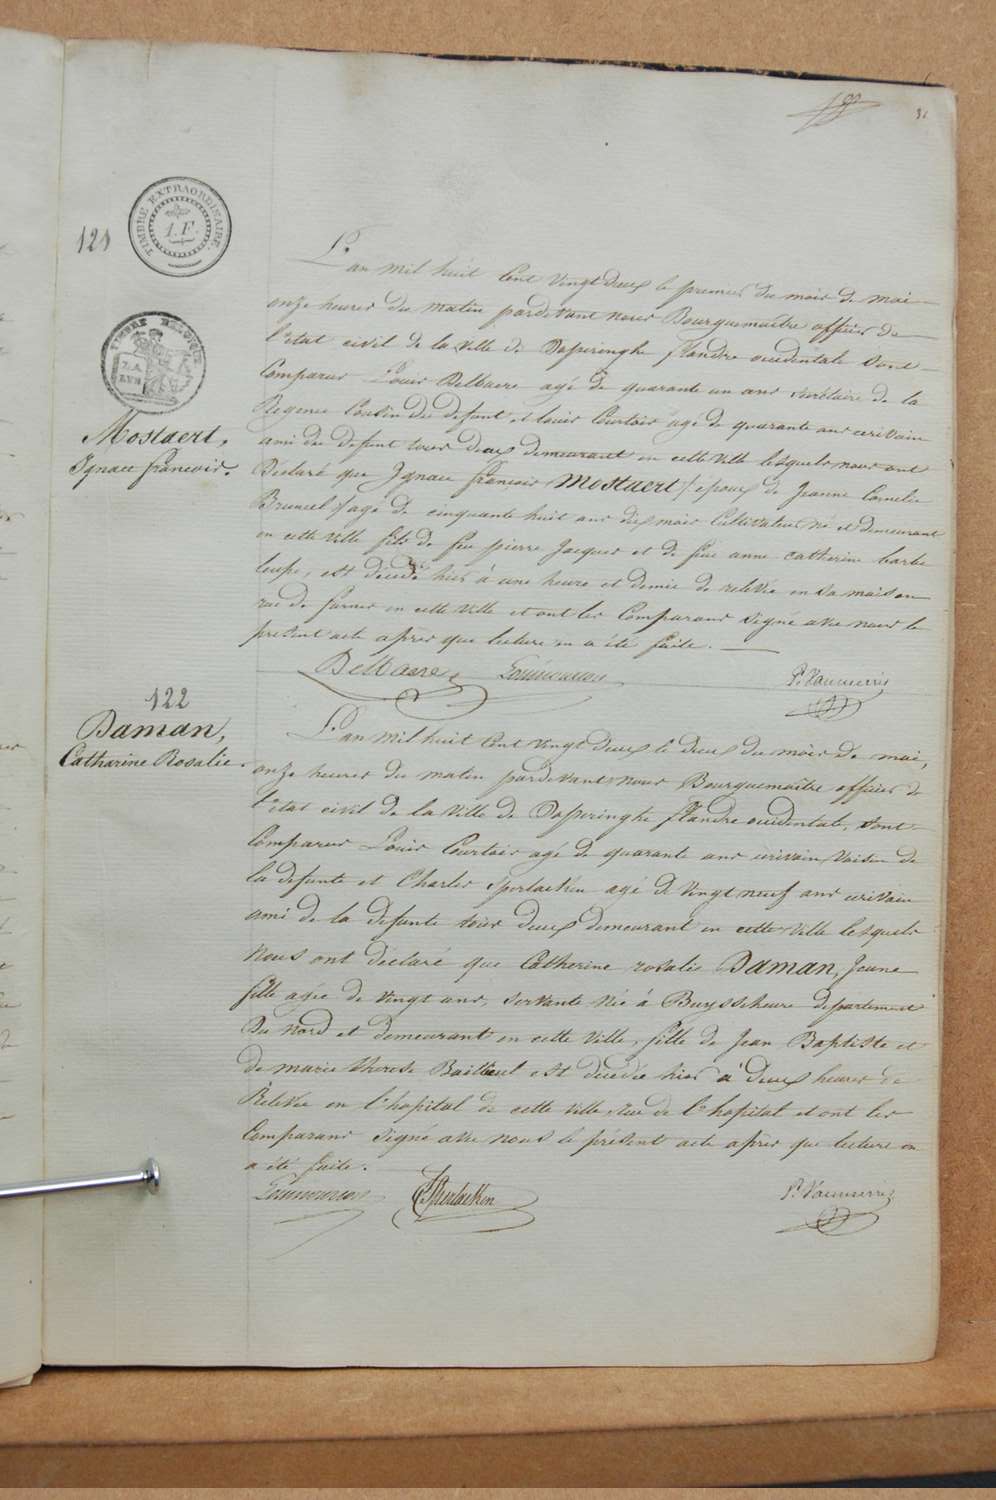 31
121
TIMBRE EXTRAORDINAIRE.
1. F.
Mostaert,
Ignace François.
L'an mil huit cent vingt deux le premier du mois de mai
onze heures du matin pardevant nous Bourguemaître officier de
l'etat civil de la ville de Poperinghe flandre occidentale sont
Comparus Louis Belbaere agé de quarante un ans secrétaire de la
Regence Cousin du defunt et Louis Courtois agé de quarante ans ecrivain
ami du defunt tous deux demeurant en cette ville lesquels nous ont
Declaré que Ignace François Mostaert / epoux de Jeanne Cornelie
Bruneel / agé de cinquante huit ans dix mois Cultivateur né et demeurant
en cette ville fils de feu pierre Jacques et de feue anne catherine barbe
leupe, est décedé hier à une heure et demie de relevée en sa maison
rue de furnes en cette ville et ont les Comparans signé avec nous le
present acte après que lecture en a été faite.
Belbaere
P. Vanmerris
122
Daman,
Catharine Rosalie.
L'an mil huit cent vingt deux le deux du mois de mai,
onze heures du matin pardevant nous Bourguemaître officier de
l'etat civil de la ville de Poperinghe flandre occidentale, sont
Comparus Louis Courtois agé de quarante ans ecrivain Voisin de
la defunte et Charles Sperlaeken agé de vingt neuf ans ecrivain
ami de la defunte tous deux demeurant en cette ville lesquels
Nous ont déclaré que Catherine rosalie Daman, Jeune
fille agée de vingt ans, servante née à Buysscheure departement
du Nord et demeurant en cette ville, fille de Jean Baptiste et
de marie therese Bailleul est décedée hier à deux heures de
Relevée en l'hopital de cette ville, rue de l'hopital et ont les
Comparans signé avec nous le présent acte apres que lecture en
a été faite.
C Sperlaeken
P. Vanmerris